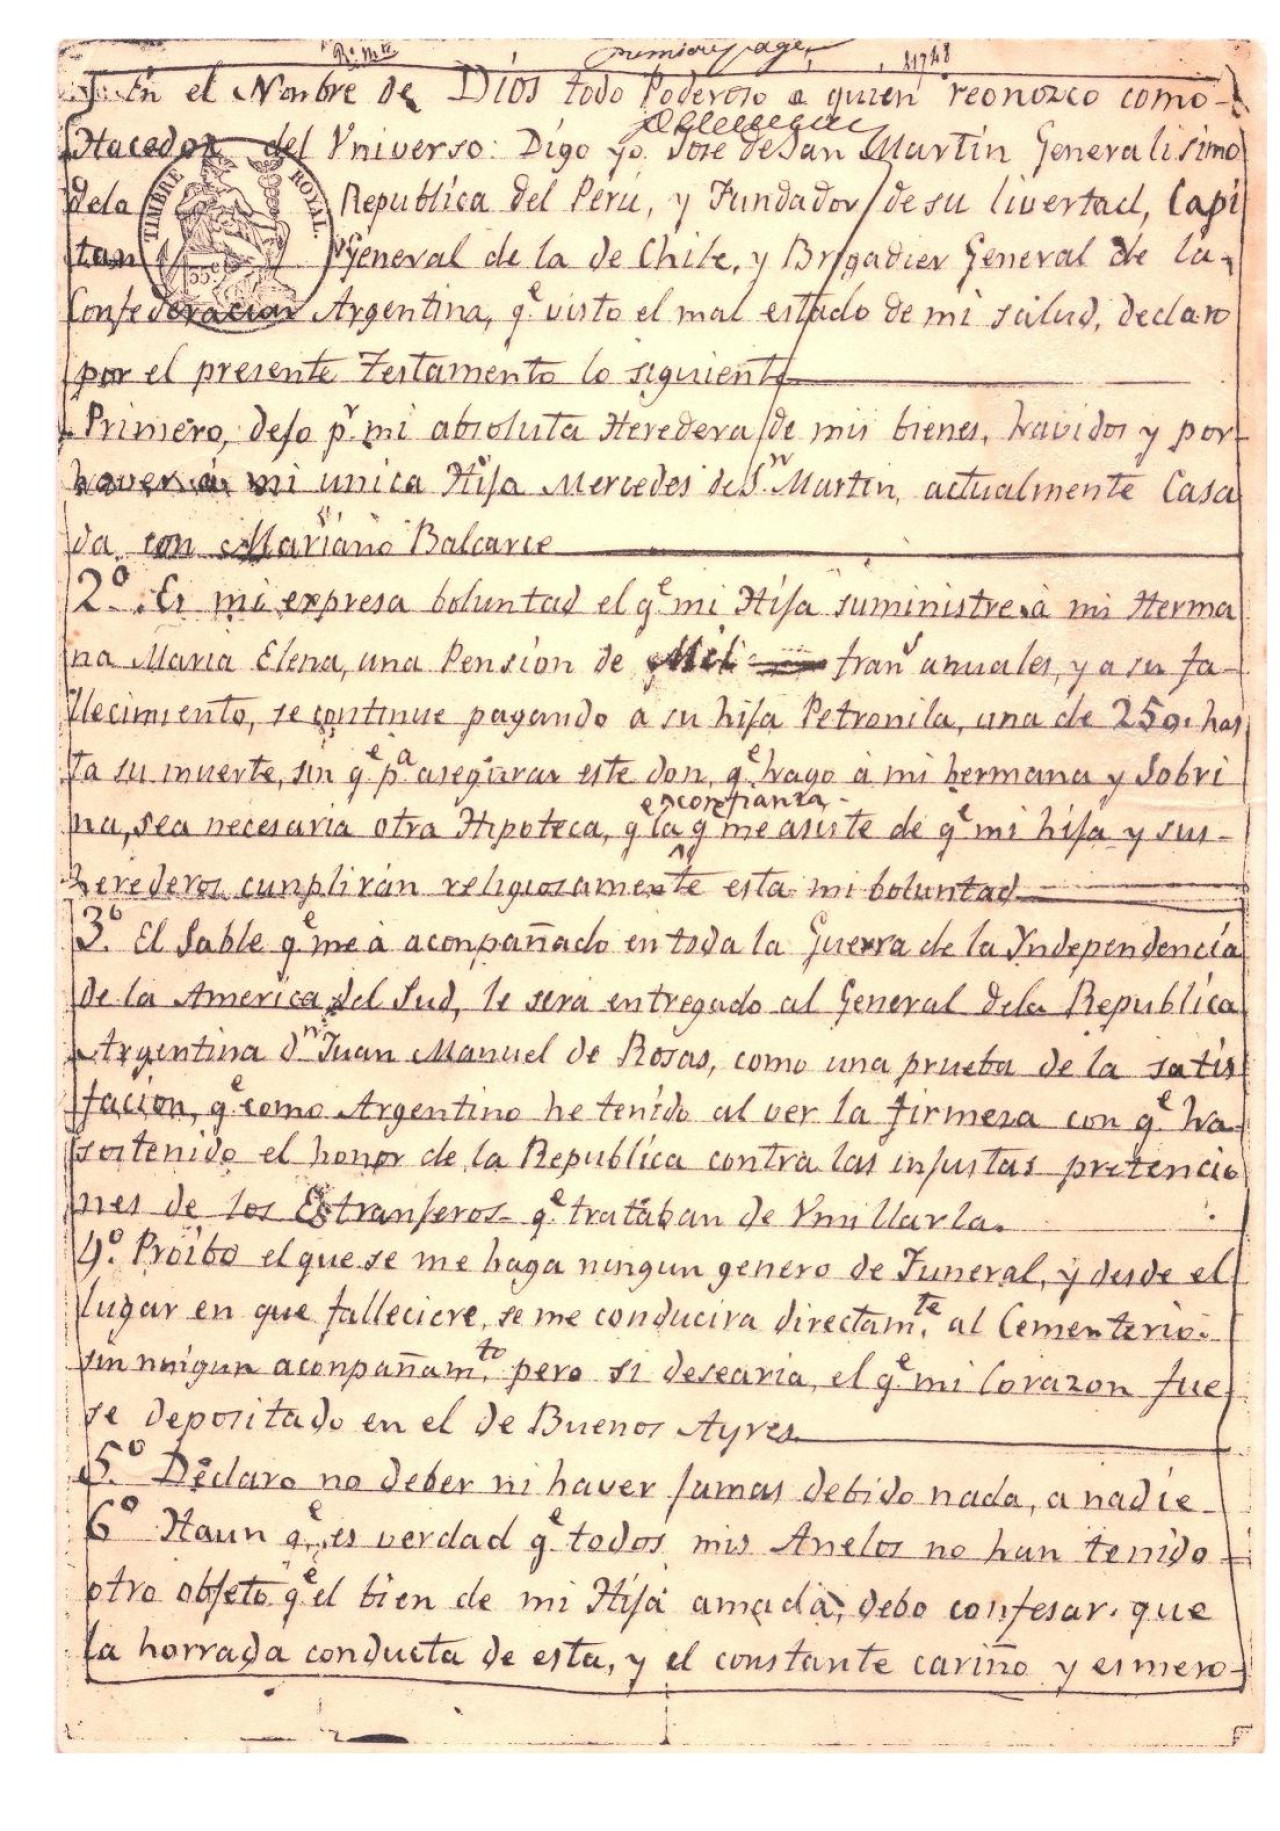 premiere page,
En el Nonbre de Dios todo Poderoso a quien reonozco como-
Hacedor del Vniverso: Digo yo Jose de San Martin Generalisimo
dela Republica del Perú, y Fundador de su livertad, Capi
TIMBRE ROYAL.
tan General de la de Chile, y Brigadier General de la
Confederacion Argentina, qe visto el mal estado de mi salud, declaro
por el presente Testamento lo siguiente
Primero, dejo pr. mi absoluta Heredera de mis bienes, havidos y por-
haver á mi unica Hija Mercedes de Sn. Martin, actualmente Casa
da con Mariano Balcarce
2º. Es mi expresa boluntad el qe mi Hija suministre á mi Herma
na Maria Elena, una Pension de Mil frans anuales, y a su fa-
llecimiento, se continue pagando a su hija Petronila, una de 250. has
ta su muerte, sin qe pa asegurar este don, qe hago á mi hermana y Sobri
confianza
na, sea necesaria otra Hipoteca, qe la qe me asiste de qe mi hija y sus-
herederos cunplirán religiosamente esta mi boluntad
3º. El Sable qe me á aconpañado en toda la Guerra de la Yndependencia
de la America del Sud, le será entregado al General dela Republica
Argentina Dn Juan Manuel de Rosas, como una prueba de la satis
facion, qe como Argentino he tenido al ver la firmeza con qe ha-
sostenido el honor de la Republica contra las injustas pretencio
nes de los Estranjeros qe trataban de Vmillarla.
4º. Proibo el que se me haga ningun genero de Funeral, y desde el
lugar en que falleciere, se me conducira directamte. al Cementerio
sin ningun aconpañamto. pero si desearia, el qe mi Corazon fue
se depositado en el de Buenos Ayres
5.º Declaro no deber ni haver jamas debido nada, a nadie
6º Haun qe es verdad qe todos mis Anelos no han tenido
otro objeto qe el bien de mi Hija amada, debo confesar. que
la horrada conducta de esta, y el constante cariño y esmero-